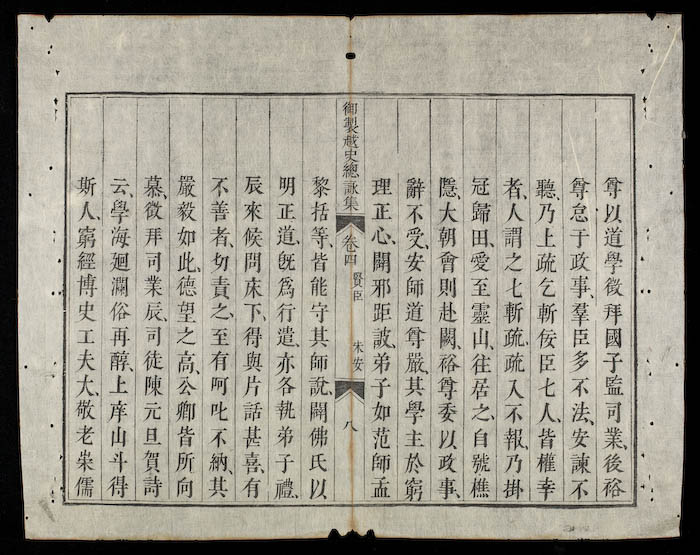 尊以道學徵拜國子監司業、後裕
尊怠于政事、羣臣多不法、安諫不
聽、乃上疏乞斬佞臣七人、皆權幸
者、人謂之七斬疏、疏入不報、乃掛
冠歸田、愛至靈山、往居之、自號樵
隱、大朝會則赴闕、裕尊委以政事、
辭不受、安師道尊嚴、其學主於窮
理正心、闢邪距詖、弟子如范師孟
御製越史總詠集 卷四 賢臣 朱安 八
黎括等、皆能守其師說、闢佛氏以
明正道、旣爲行遣、亦各執弟子禮、
辰來候問床下、得與片話甚喜、有
不善者、切責之、至有呵叱不納、其
嚴毅如此、德望之高、公卿皆所向
慕、徵拜司業辰、司徒陳元旦賀詩
云、學海廻瀾俗再醇、上庠山斗得
斯人、窮經博史工夫大、敬老崇儒